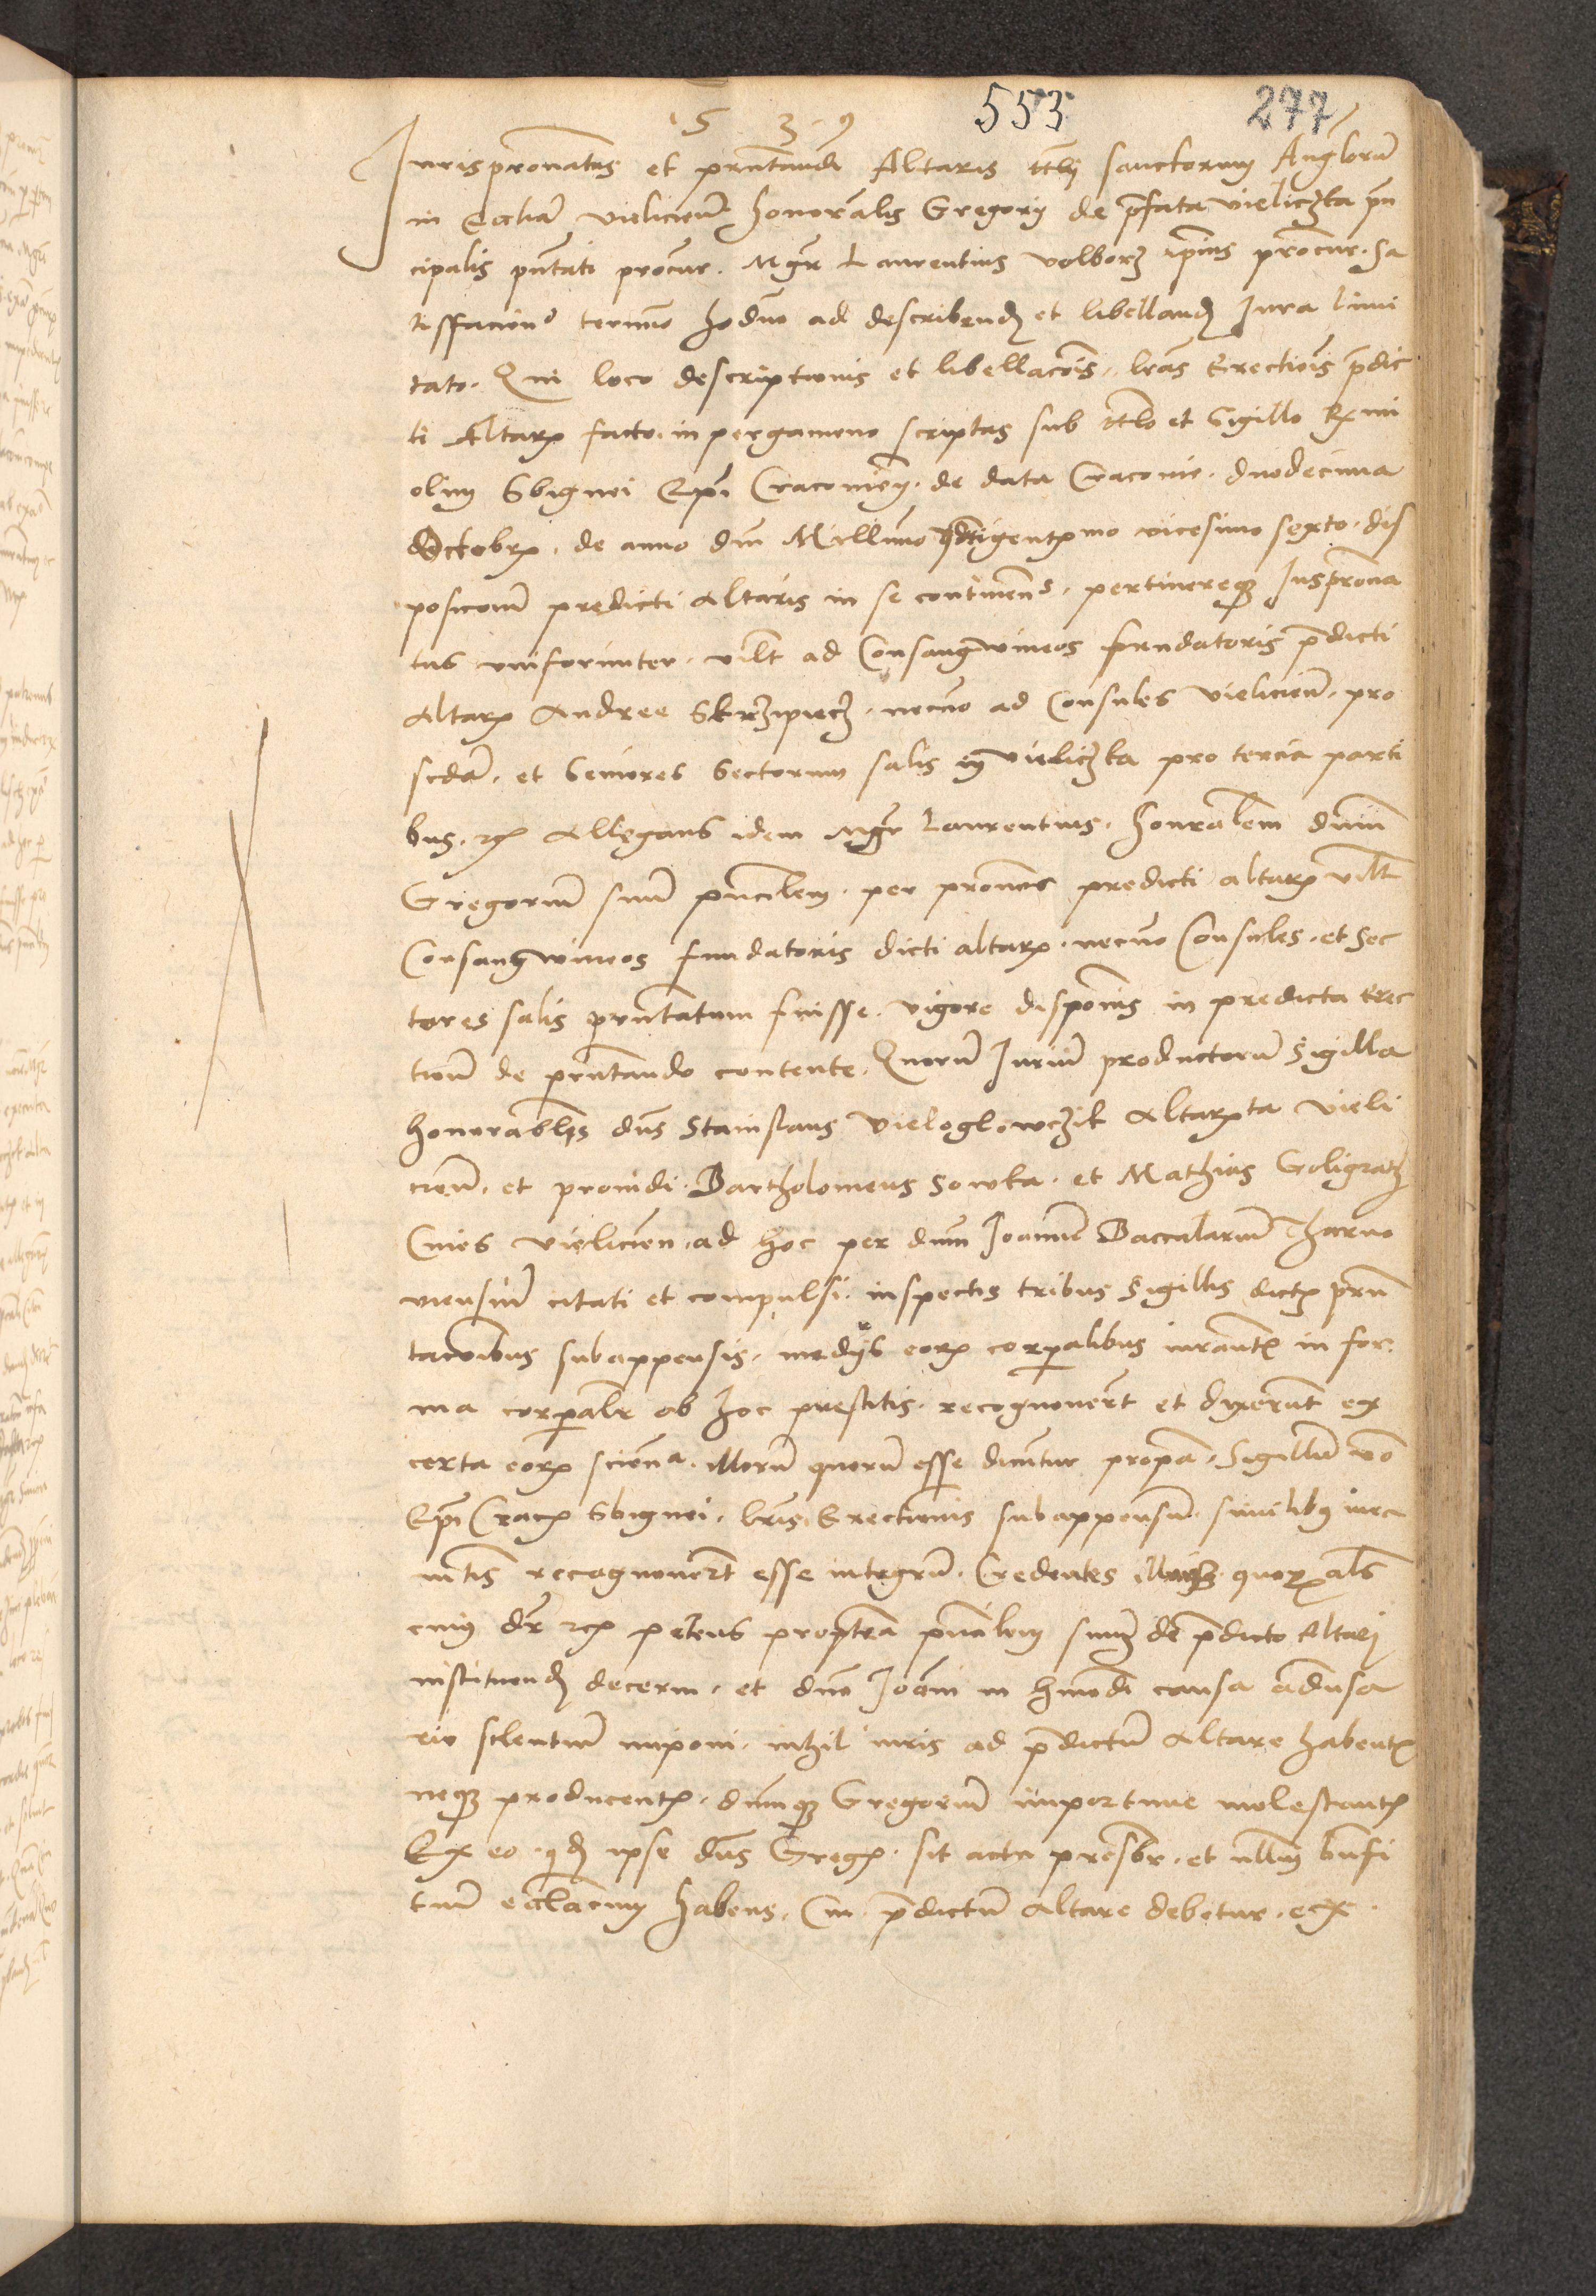 1 5 3 9 553 277
Jurispronatus et prntandi Altaris ttli sanctorum Anglorum
in Ecclia vieliciens honoralis Gregorij de pfata vieliczka prin
cipalis pntati procur. Mgr Laurentius volborz ipius procur. sa
tisfaciens termino hodno ad describend et libelland Jura limi
tato. Qui loco descriptionis et libellacois, lras Erectiois predic
ti Altaris facto. in pergameno scriptas sub ttlo et Sigillo Rmi
olim Sbignei Epi Cracouien. de data Cracouie. duodecima
Octobrs. de anno dni Millimo qdrigentmo vicesimo sexto. dis
posicom predicti altaris in se continens. pertinereque Juspronа
tus vniformiter. vidlt ad Consangwineos fundatoris pdicti
altaris Andree Skrzipiecz. necno ad Consules vielicien. pro
scda. et Seniores Sectorum salis in vieliczka pro tercia parti
bus. etc Allegans idem Mgr Laurentius. honoralem dnum
Gregorium suum principlem. per pronos predicti altaris vidlt
Consangwineos fundatoris dicti altaris. necno Consules. et Sec
tores salis prntatum fuisse. vigore disposnis in predicta Erec
tiom de prntando contente. Quorum Jurium productorum Sigilla
honorables dns Stanislaus Vieloglowczik altarista vieli
cien. et prouidi. Bartholomeus Sowka. et Mathias Goligrath
Ciues vielicien. ad hoc per dnum Joannem Baccalarium Tharno
uiensium citati et compulsi. inspectis tribus Sigillis dictis prn
tacoibus subappensis. medijs eorum corporalibus iurants in for
ma corporalr ob hoc prestitis. recognouert et dixerunt ex
certa eorum sciencia. illorum quorum esse dicuntur propria. Sigillum vo
Epi Cracs Sbignei. lris Erectionis subappensum. similibus iura
mtis recognouert esse integrum. Credentes quorum als
cuius dr etc petens propterea prinalem suum de pdicto Altari
instituend decerni. et dno Joanni in hmodi causa aduersa
rio silentium imponi. nihil iuris ad pdictum Altare habents
neque producents. dnumque Gregorium importune molestants
Ex eo. qd ipse dns Gregs. sit actu presbr. et nllum bnfi
tium ecclacum habens. Cui pdictum Altare debetur. etc.